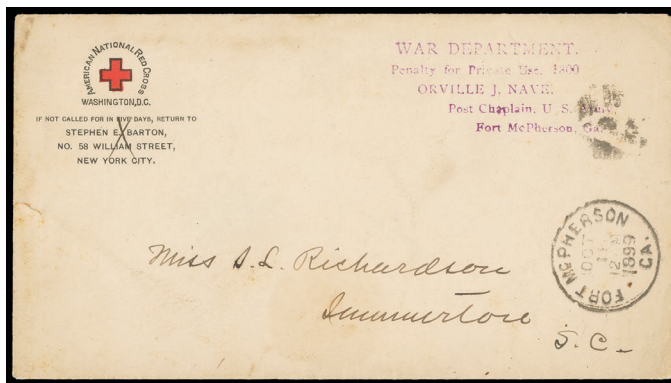 AMERICAN NATIONAL RED CROSS
WASHINGTON, D.C.
IF NOT CALLED FOR IN FIVE DAYS, RETURN TO
STEPHEN E. BARTON,
NO. 58 WILLIAM STREET,
NEW YORK CITY.
WAR DEPARTMENT.
Penalty for Private Use, $300
ORVILLE J. NAVE.
Post Chaplain, U. S. Army,
Fort McPherson, Ga.
FORT McPHERSON GA.
OCT
12 M
1899
Miss S. L. Richardson
Summerton
S. C.